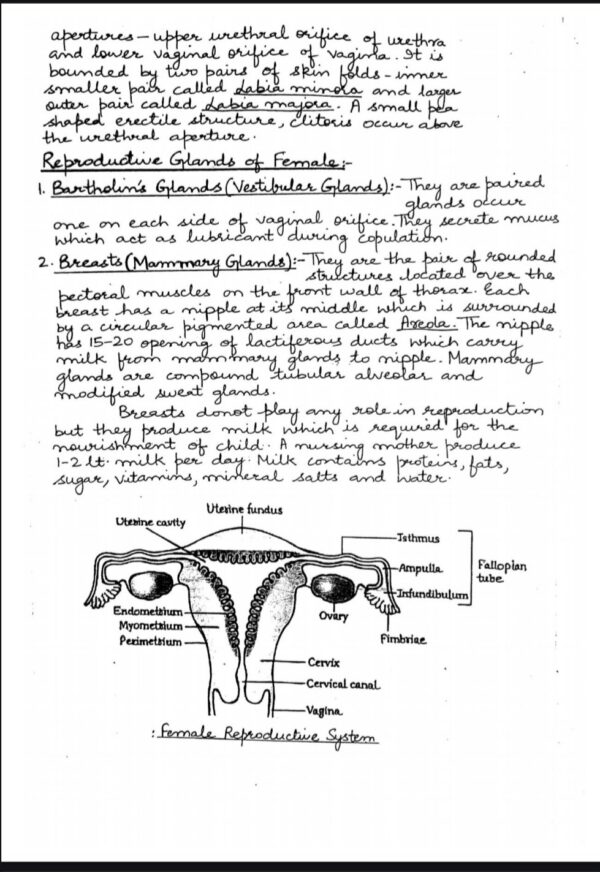 apertures - upper urethral orifice of urethra
and lower vaginal orifice of vagina. It is
bounded by two pairs of skin folds - inner
smaller pair called Labia minora and larger
outer pair called Labia majora. A small pea
shaped erectile structure, clitoris occur above
the urethral aperture.
Reproductive Glands of Female:-
1. Bartholin's Glands (Vestibular Glands):- They are paired
glands occur
one on each side of vaginal orifice. They secrete mucus
which act as lubricant during copulation.
2. Breasts (Mammary Glands):- They are the pair of rounded
structures located over the
pectoral muscles on the front wall of thorax. Each
breast has a nipple at its middle which is surrounded
by a circular pigmented area called Areola. The nipple
has 15-20 opening of lactiferous ducts which carry
milk from mammary glands to nipple. Mammary
glands are compound tubular alveolar and
modified sweat glands.
Breasts donot play any role in reproduction
but they produce milk which is required for the
nourishment of child. A nursing mother produce
1-2 lt. milk per day. Milk contains proteins, fats,
sugar, vitamins, mineral salts and water.
Uterine fundus
Uterine cavity
Isthmus
Ampulla
Fallopian
tube
Infundibulum
Endometrium
Ovary
Myometrium
Fimbriae
Perimetrium
Cervix
Cervical canal
Vagina
: Female Reproductive System